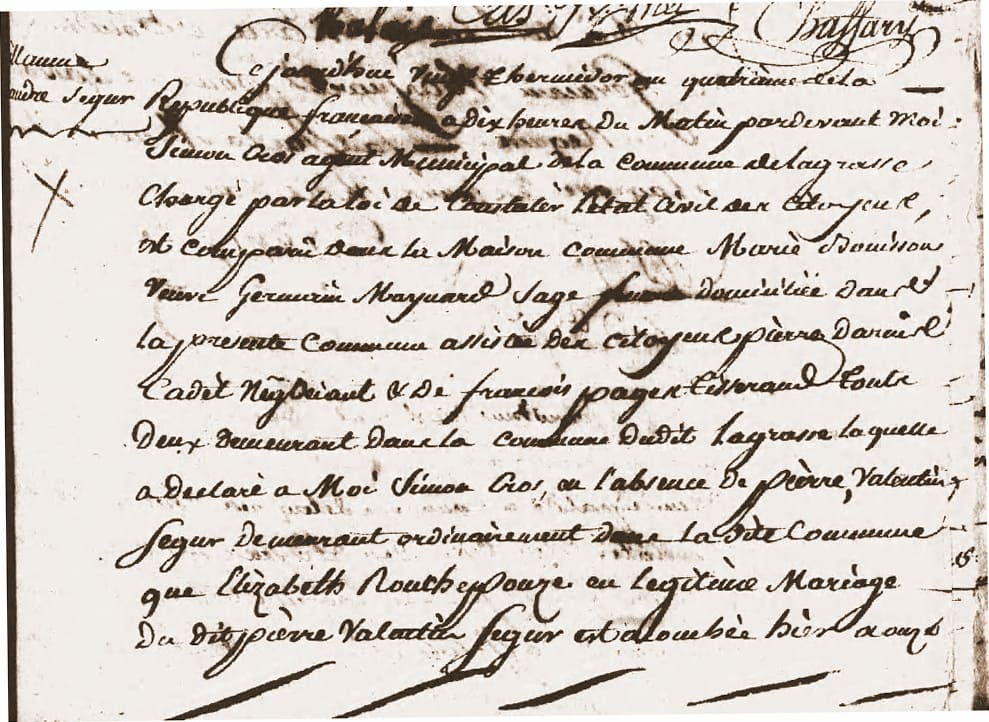 Chaffary
Segur
Cejourdhui vingt thermidor an quatrième de la
Republique francaise a dix heures du Matin pardevant Moi
Simon Cros agent Municipal de la commune de lagrasse
Chargé par la loi de Constater l'état Civil des Citoyens,
est comparû dans la Maison commune Marie Bouisson
Veuve Germain Maynard Sage femme domiciliée dans
la presente Commune assistée des citoyens pierre
Cadet Négociant & de françois pages tisserand touts
Deux demeurant dans la commune dudit lagrasse laquelle
a declaré a Moi Simon Cros, en l'absence de pierre, Valentin
Segur demeurant ordinairement dans la dite Commune
que Elizabeth epouze en legitime Mariage
du dit pierre Valentin Segur est acouchée hier a onze